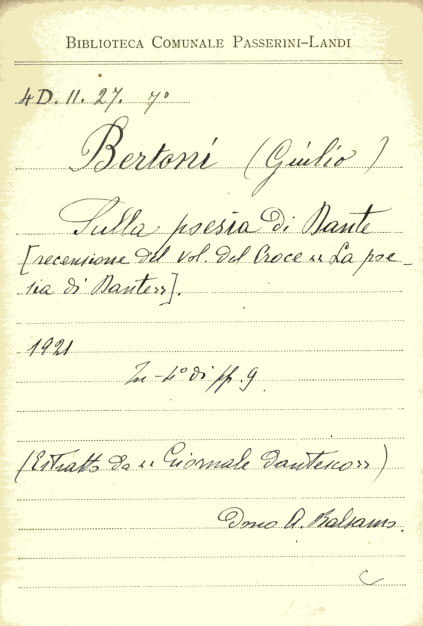 BIBLIOTECA COMUNALE PASSERINI-LANDI
4 D. 11. 27. 7º
Bertoni (Giulio)
Sulla poesia di Dante
[recensione del vol. del Croce «La poe-
sia di Dante»].
1921
In-4º di pp. 9.
(Estratto da «Giornale dantesco»)
Dono A. Balsamo.
C